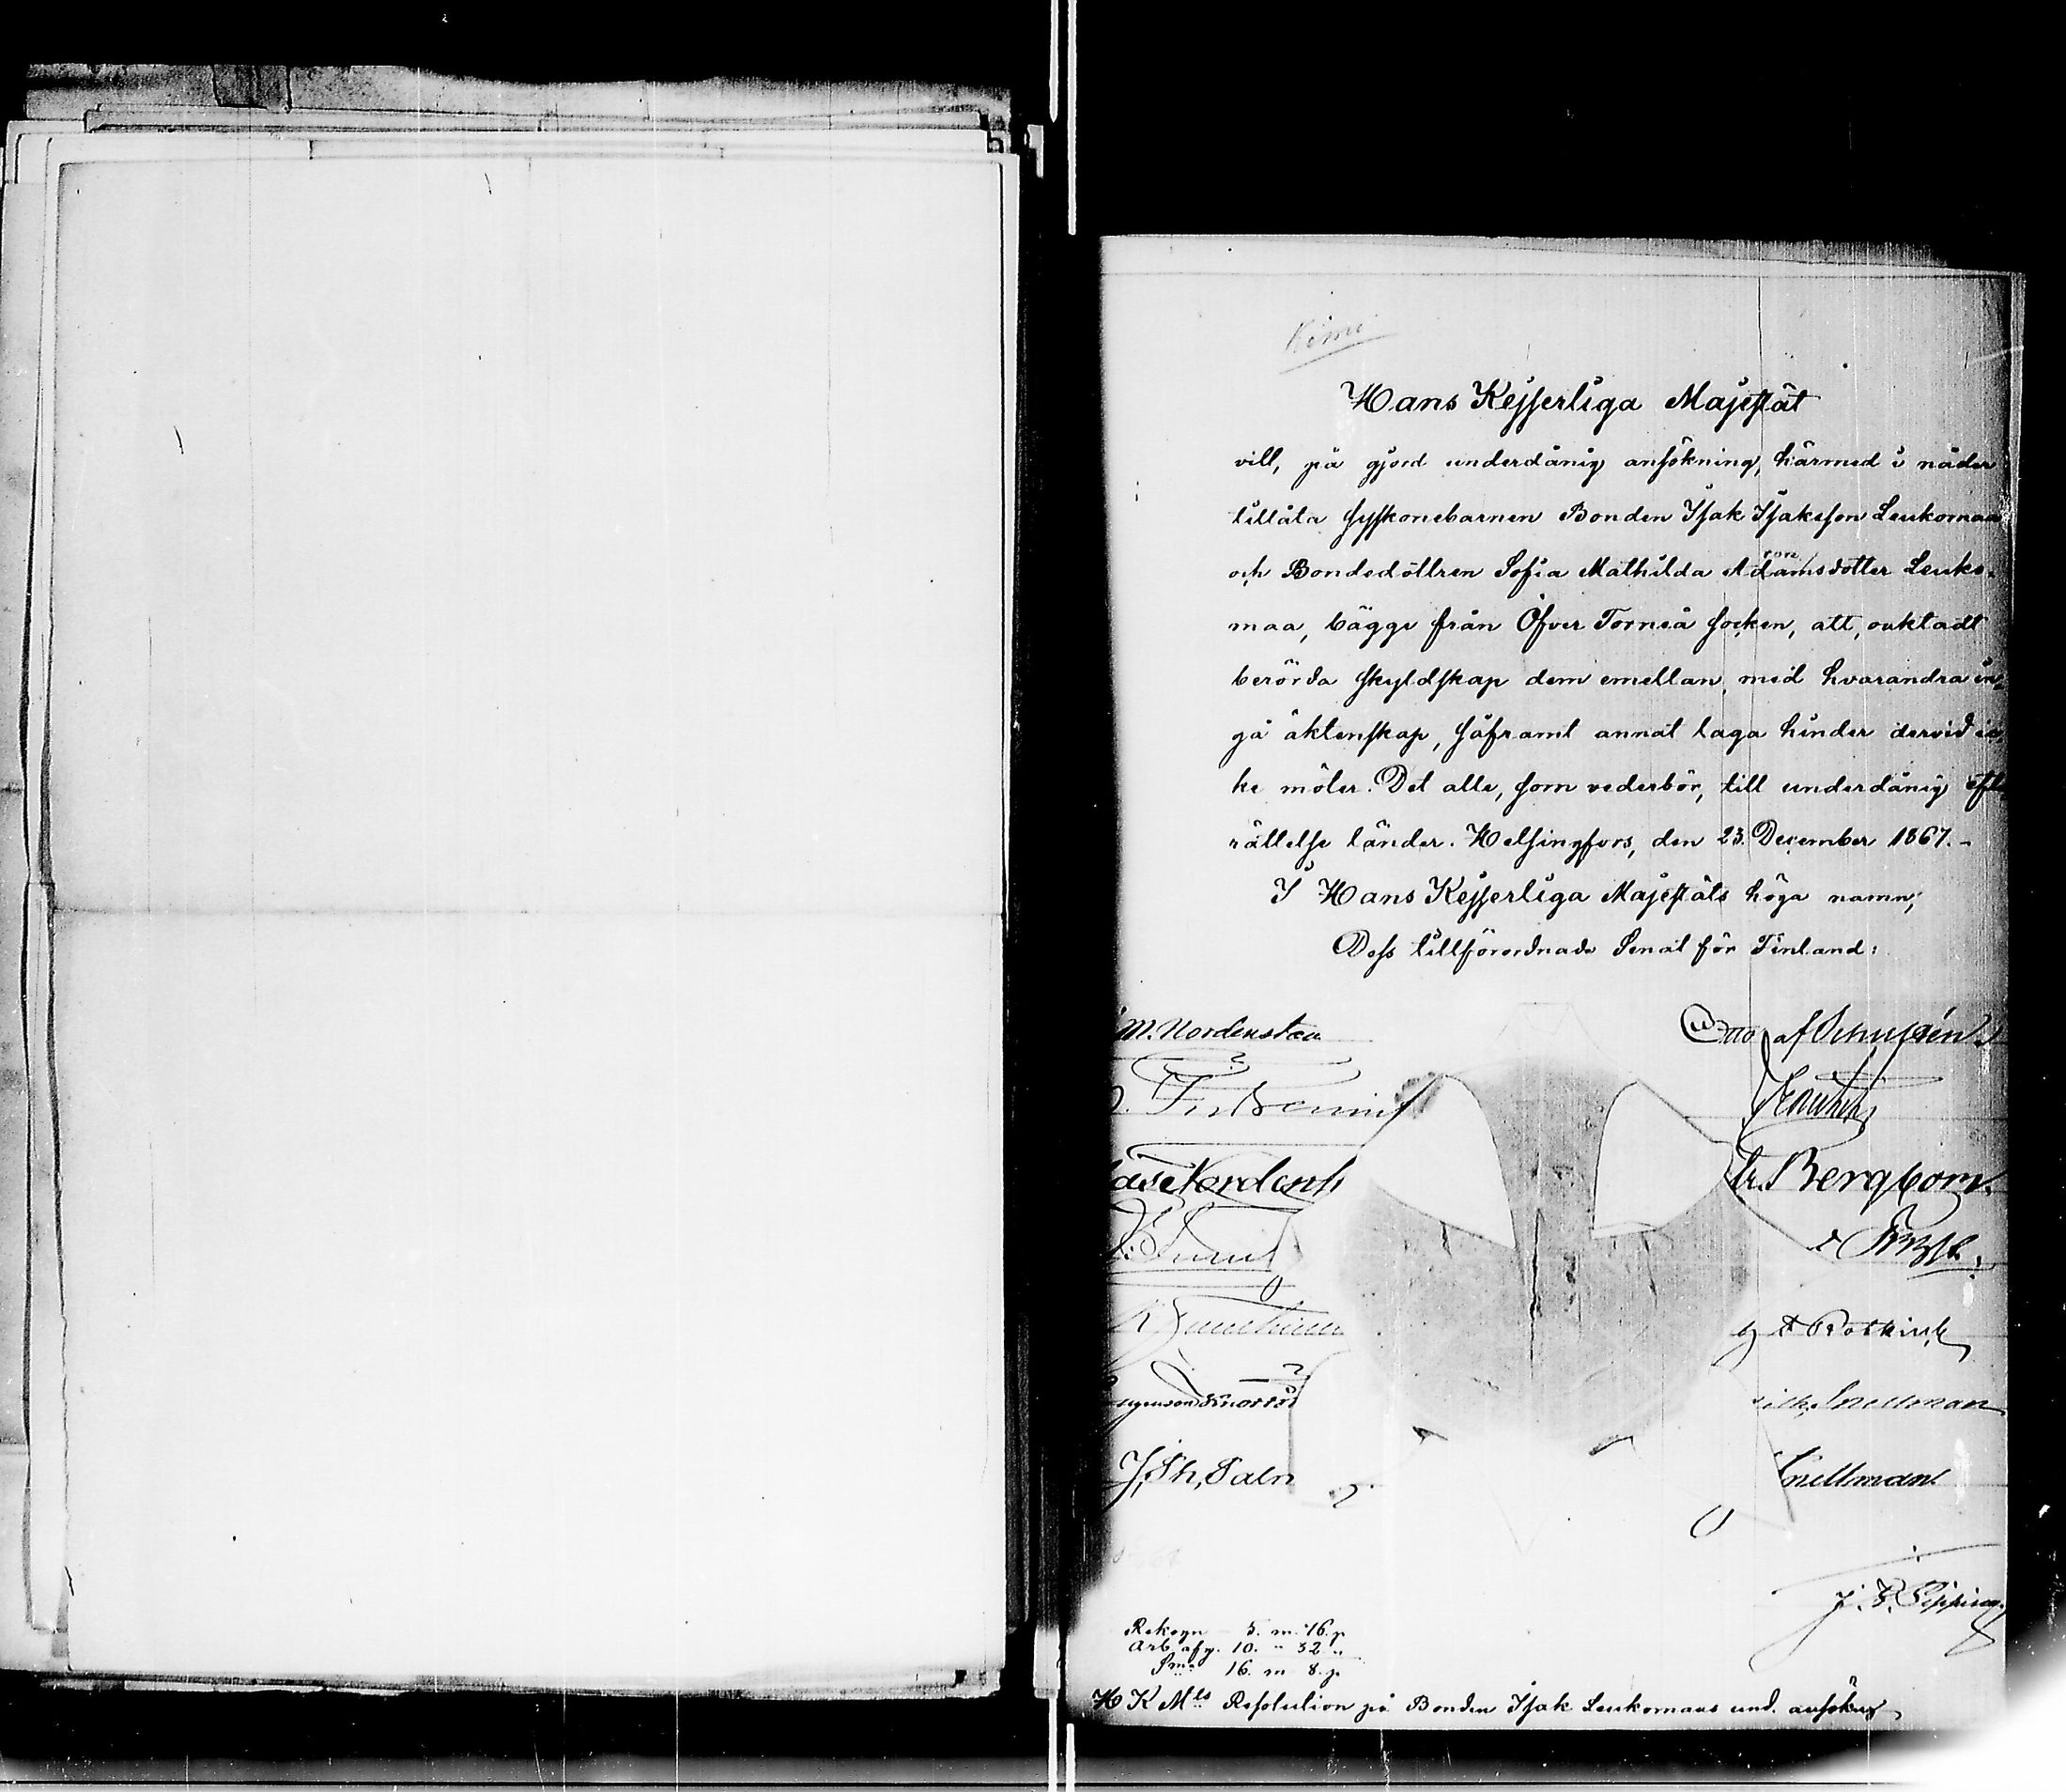 Kimi
Hans Kejserliga Majestät
vill, på gjord underdånig ansökning, härmed i nåder
tillåta syskonebarnen Bonden Isak Isaksson Leukomaa
och Bondedöttren Sofia Mathilda Adamsdotter Leuko-
ron
maa, bägge från Öfver Torneå socken, att, oaktadt
berörda skyldskap dem emellan, med hvarandra in-
gå äktenskap, såframt annat laga hinder dervid ic-
ke möter. Det alle, som vederbör, till underdånig efter-
rättelse länder. Helsingfors, den 23. December 1867.-
I Hans Kejserliga Majestäts höga namn;
Dess tillförordnade Senat för Finland:
M. Nordenstam
Otto af Schultén.
Bergbom.
Knorrin
Snellman
J, Ph, Palm
Snellman
Rekogn 5. m. 16. p
Arb. afg. 10. " 32 "
Sma 16. m 8. p
H K Mts Resolution på Bonden Isak Leukomaas und. ansökng